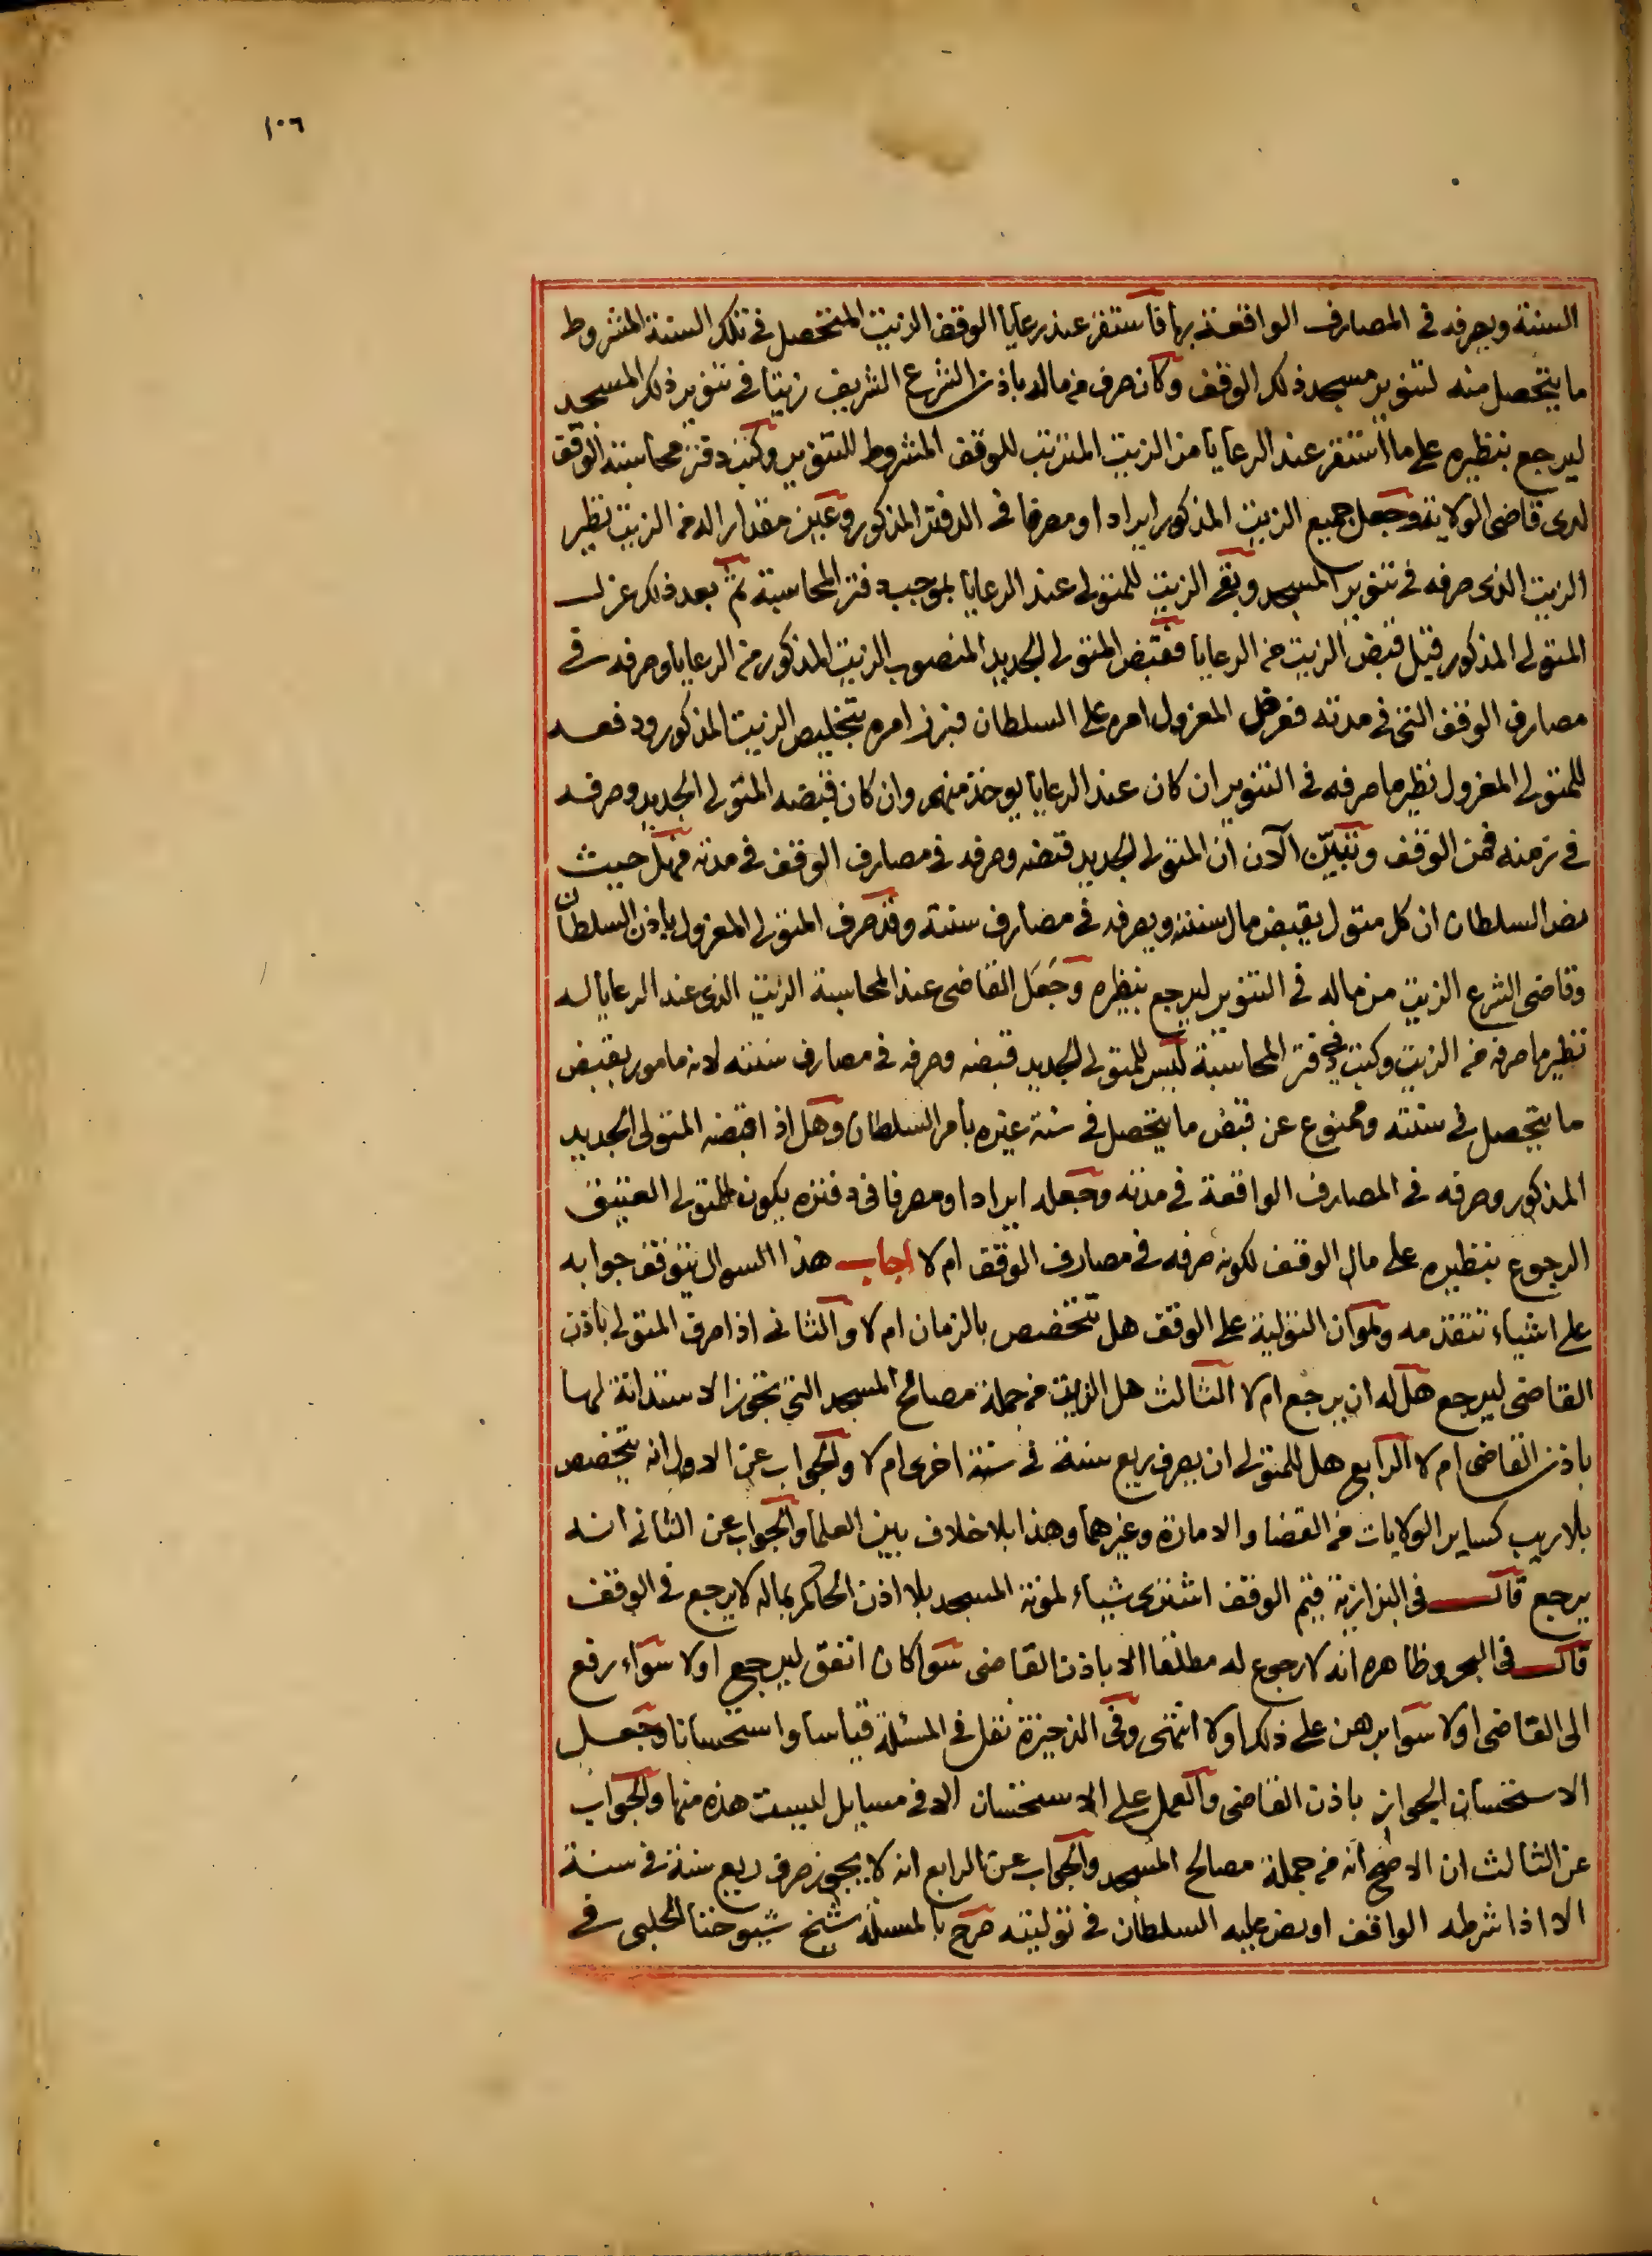 ١٠٦
السنة ويصرفه في المصارف الواقعة بها فاستقر عند رعايا الوقف الزيت المتحصل في تلك السنة المشروط
ما يتحصل منه لتنوير مسجد ذلك الوقف وكان صرف من ماله باذن الشرع الشريف زيتا في تنوير ذلك المسجد
ليرجع بنظيره على ما استقر عند الرعايا من الزيت المترتب للوقف المشروط للتنوير وكتب دفتر محاسبته الوقف
لدى قاضى الولاية وجعل جميع الزيت المذكور ايرادا ومصرفا في الدفتر المذكور وعين مقدارا له من الزيت نظير
الزيت الذى صرفه في تنوير المسجد وبقى الزيت للمتولى عند الرعايا بموجب دفتر المحاسبة ثم بعد ذلك عزل
المتولى المذكور قبل قبض الزيت من الرعايا فقبض المتولى الجديد المنصوب الزيت المذكور من الرعايا وصرفه في
مصارف الوقف التى في مدته فعرض المعزول امره على السلطان فبرز امره بتخليص الزيت المذكور ودفعه
للمتولى المعزول نظير ما صرفه في التنوير ان كان عند الرعايا يوخذ منهم وان كان قبضه المتولى الجديد وصرفه
في زمنه فمن الوقف وتبين الآن ان المتولى الجديد قبضه وصرفه في مصارف الوقف في مدته فهل حيث
نص السلطان ان كل متول يقبض مال سنته ويصرفه في مصارف سنته وقد صرف المتولى المعزول باذن السلطان
وقاضى الشرع الزيت من ماله في التنوير ليرجع بنظيره وجعل القاضى عند المحاسبة الزيت الذى عند الرعايا له
نظير ما صرفه من الزيت وكتب في دفتر المحاسبة ليس للمتولى الجديد قبضه وصرفه في مصارف سنته لانه مامور بقبض
ما يتحصل في سنته وممنوع عن قبض ما يتحصل في سنة غيره بأمر السلطان وهل اذا قبضه المتولى الجديد
المذكور وصرفه في المصارف الواقعة في مدته وجعله ايرادا ومصرفا في دفتره يكون للمتولى العتيق
الرجوع بنظيره على مال الوقف لكونه صرفه في مصارف الوقف ام لا اجاب هذا السوال يتوقف جوابه
على اشياء تتقدمه وهو ان التولية على الوقف هل تتخصص بالزمان ام لا والثانى اذا صرف المتولى باذن
القاضى ليرجع هل له ان يرجع ام لا الثالث هل الزيت من جملة مصالح المسجد التى تجوز الاستدانة لها
باذن القاضى ام لا الرابع هل للمتولى ان يصرف ريع سنة في سنة اخرى ام لا والجواب عن الاول انه يتخصص
بلا ريب كساير الولايات من القضا والامارة وغيرهما وهذا بلا خلاف بين العلما والجواب عن الثانى انه
يرجع قال في البزازية قيم الوقف اشترى شياء لمونة المسجد بلا اذن الحاكم بماله لا يرجع في الوقف
قال في البحر وظاهره انه لا رجوع له مطلقا الا باذن القاضى سوا كان انفق ليرجع اولا سواء رفع
الى القاضى اولا سوا برهن على ذلك اولا انتهى وفى الذخيرة نقل في المسئلة قياسا واستحسانا وجعل
الاستحسان الجواز باذن القاضى والعمل على الاستحسان الا في مسايل ليست هذه منها والجواب
عن الثالث ان الاصح انه من جملة مصالح المسجد والجواب عن الرابع انه لا يجوز صرف ريع سنة في سنة
الا اذا شرطه الواقف او نص عليه السلطان في توليته صرح بالمسئلة شيخ شيوخنا الحلبى في